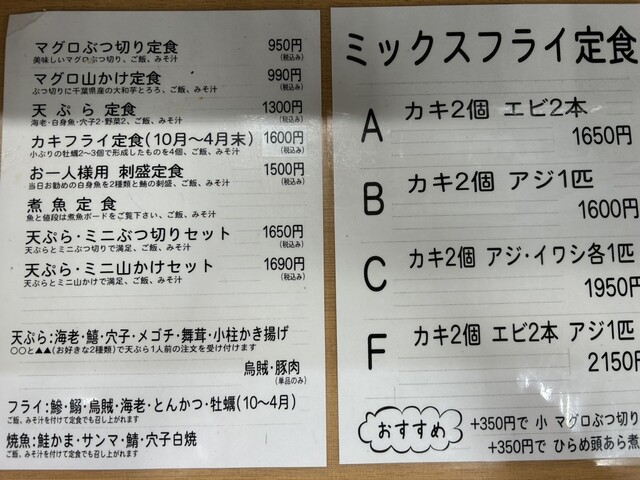 マグロぶつ切り定食 950円
美味しいマグロぶつ切り、ご飯、みそ汁 (税込み)
マグロ山かけ定食 990円
ぶつ切りに千葉県産の大和芋とろろ、ご飯、みそ汁 (税込み)
天 ぷ ら 定 食 1300円
海老・白身魚・穴子2・野菜2、ご飯、みそ汁 (税込み)
カキフライ定食(10月〜4月末) 1600円
小ぶりの牡蠣2〜3個で形成したものを4個、ご飯、みそ汁 (税込み)
お一人様用 刺盛定食 1500円
当日お勧めの白身魚を2種類と鮪の刺盛、ご飯、みそ汁 (税込み)
煮 魚 定 食
魚と値段は煮魚ボードをご覧下さい、ご飯、みそ汁
天ぷら・ミニぶつ切りセット 1650円
天ぷらとミニぶつ切りで満足、ご飯、みそ汁 (税込み)
天ぷら・ミニ山かけセット 1690円
天ぷらとミニ山かけで満足、ご飯、みそ汁 (税込み)
天ぷら:海老・鱚・穴子・メゴチ・舞茸・小柱かき揚げ
○○と▲▲(お好きな2種類)で天ぷら1人前の注文を受け付けます
烏賊・豚肉
(単品のみ)
フライ:鯵・鰯・烏賊・海老・とんかつ・牡蠣(10〜4月)
ご飯、みそ汁を付けて定食でも召し上がれます
焼魚:鮭かま・サンマ・鯖・穴子白焼
ご飯、みそ汁を付けて定食でも召し上がれます
ミックスフライ定食
A カキ2個 エビ2本
1650円
B カキ2個 アジ1匹
1600円
C カキ2個 アジ・イワシ各1匹
1950円
F カキ2個 エビ2本 アジ1匹
2150円
おすすめ
+350円で 小 マグロぶつ切り
+350円で ひらめ頭あら煮